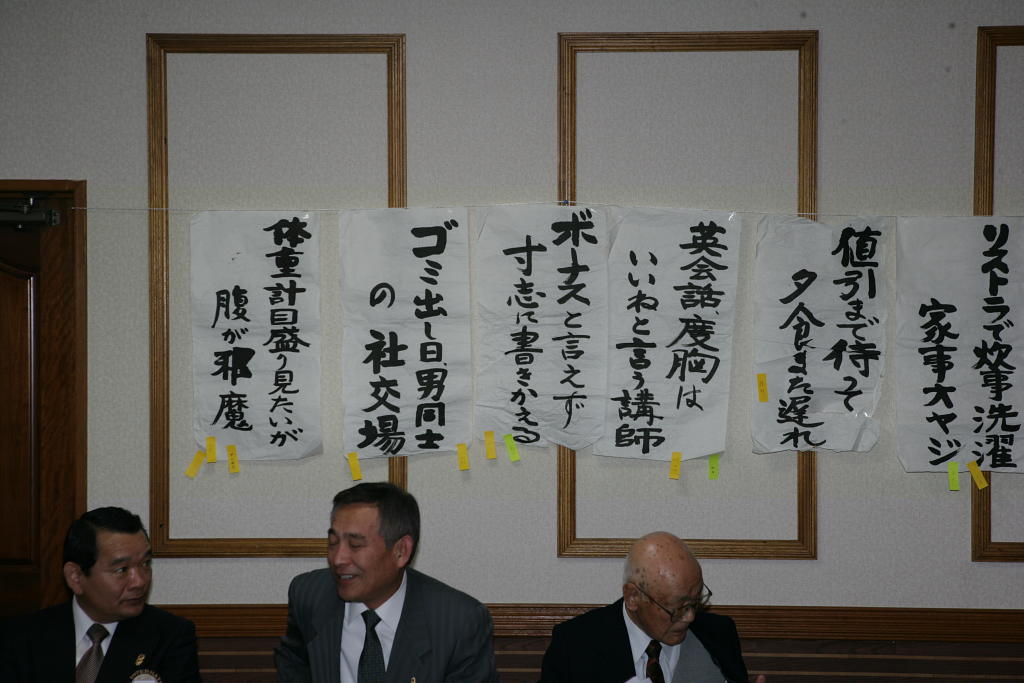 リストラで炊事洗濯
家事大ヤジ
値引まで待って
夕食また遅れ
英会話、度胸は
いいねと言う講師
ボーナスと言えず
寸志に書きかえる
ゴミ出し日男同士
の社交場
体重計目盛り見たいが
腹が邪魔